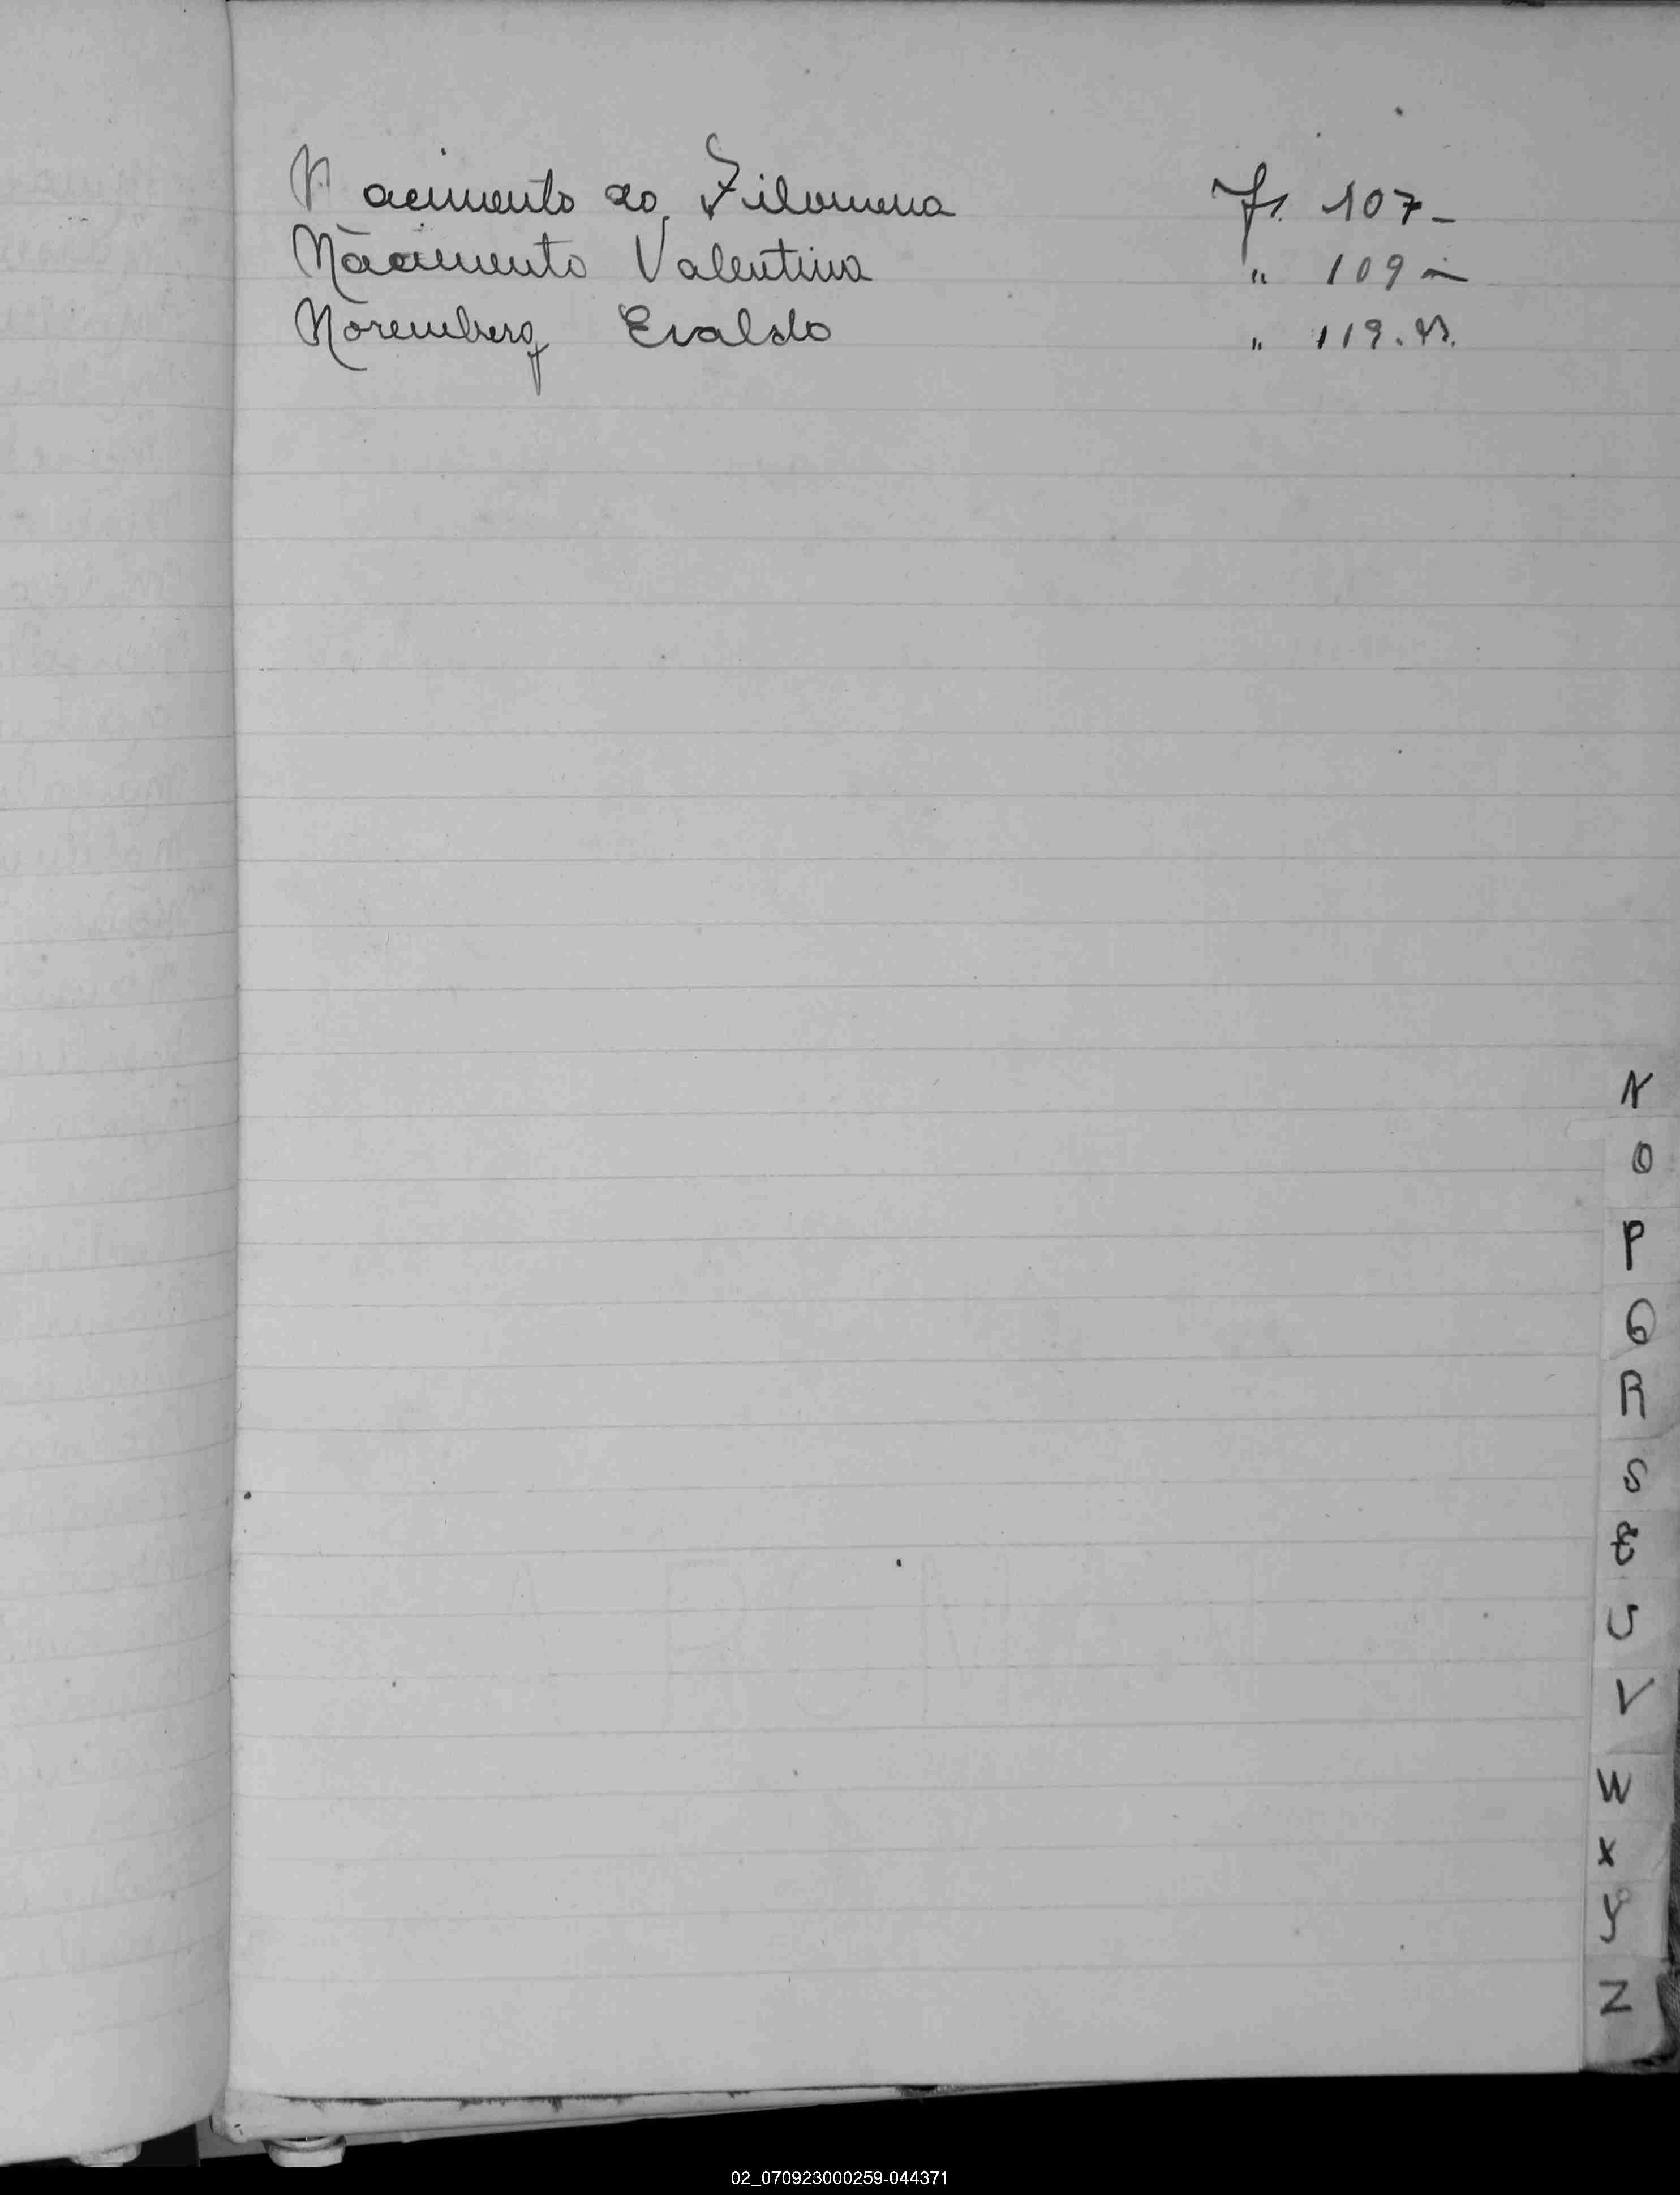 Nacimento do, Filomena fs. 107-
Nacimento Valentina " 109
Noremberg Evaldo " 119.
N
O
P
Q
R
S
T
U
V
W
X
Y
Z
02_070923000259-044371